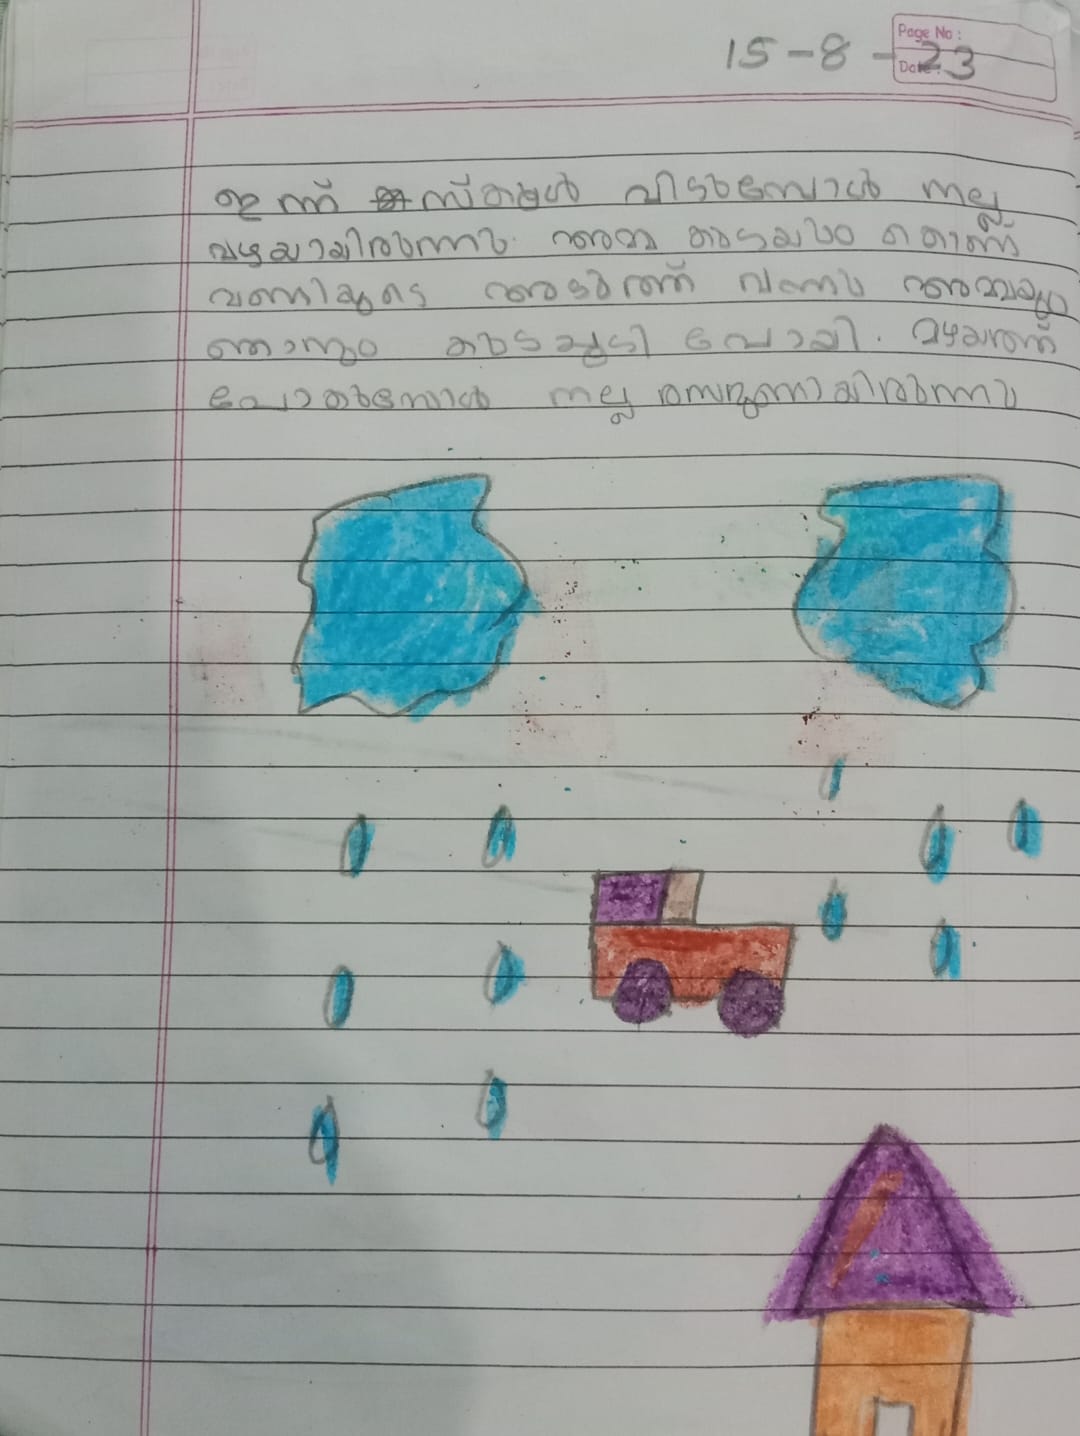 15-8-23
Page No :
Date :
ഇന്ന് സ്കൂൾ വിടുമ്പോൾ നല്ല
മഴയായിരുന്നു. അമ്മ കുടയും കൊണ്ട്
വണ്ടിയുടെ അടുത്ത് വന്നു അമ്മയും
ഞാനും കുടചൂടി പോയി. മഴയത്ത്
പോകുമ്പോൾ നല്ല രസമുണ്ടായിരുന്നു